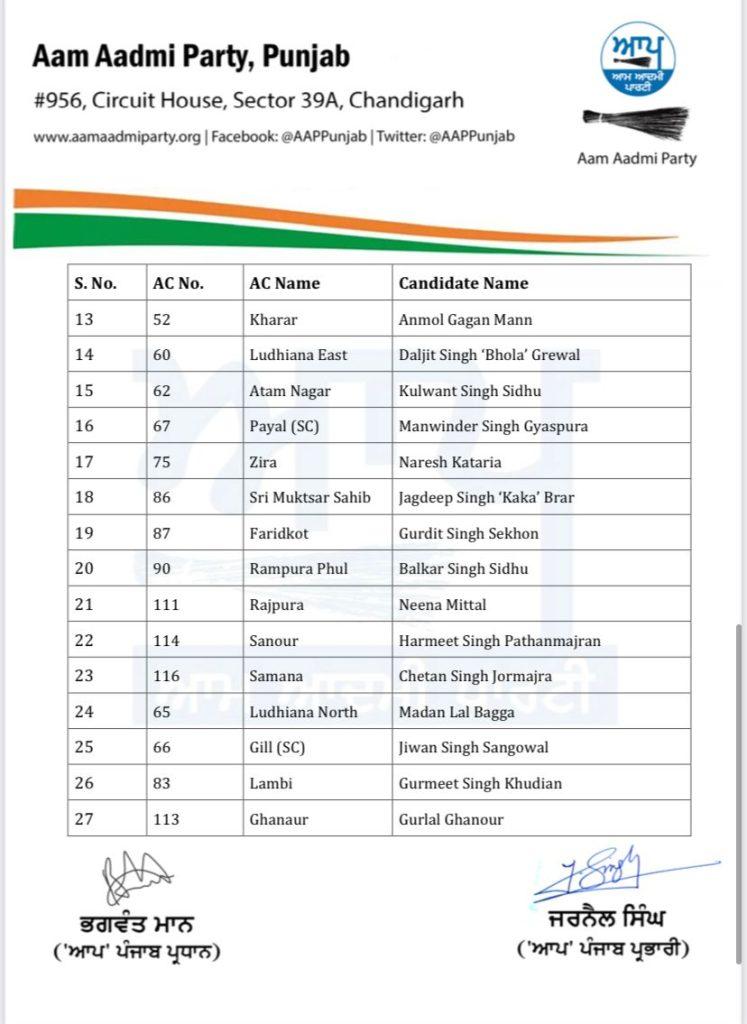 Aam Aadmi Party, Punjab
#956, Circuit House, Sector 39A, Chandigarh
www.aamaadmiparty.org | Facebook: @AAPPunjab | Twitter: @AAPPunjab
ਆਪ
ਆਮ ਆਦਮੀ
ਪਾਰਟੀ
Aam Aadmi Party
S. No. AC No. AC Name Candidate Name
13 52 Kharar Anmol Gagan Mann
14 60 Ludhiana East Daljit Singh ‘Bhola’ Grewal
15 62 Atam Nagar Kulwant Singh Sidhu
16 67 Payal (SC) Manwinder Singh Gyaspura
17 75 Zira Naresh Kataria
18 86 Sri Muktsar Sahib Jagdeep Singh ‘Kaka’ Brar
19 87 Faridkot Gurdit Singh Sekhon
20 90 Rampura Phul Balkar Singh Sidhu
21 111 Rajpura Neena Mittal
22 114 Sanour Harmeet Singh Pathanmajran
23 116 Samana Chetan Singh Jormajra
24 65 Ludhiana North Madan Lal Bagga
25 66 Gill (SC) Jiwan Singh Sangowal
26 83 Lambi Gurmeet Singh Khudian
27 113 Ghanaur Gurlal Ghanour
ਆਪ
ਆਮ ਆਦਮੀ ਪਾਰਟੀ
ਭਗਵੰਤ ਮਾਨ
('ਆਪ' ਪੰਜਾਬ ਪ੍ਰਧਾਨ)
J. Singh
ਜਰਨੈਲ ਸਿੰਘ
('ਆਪ' ਪੰਜਾਬ ਪ੍ਰਭਾਰੀ)